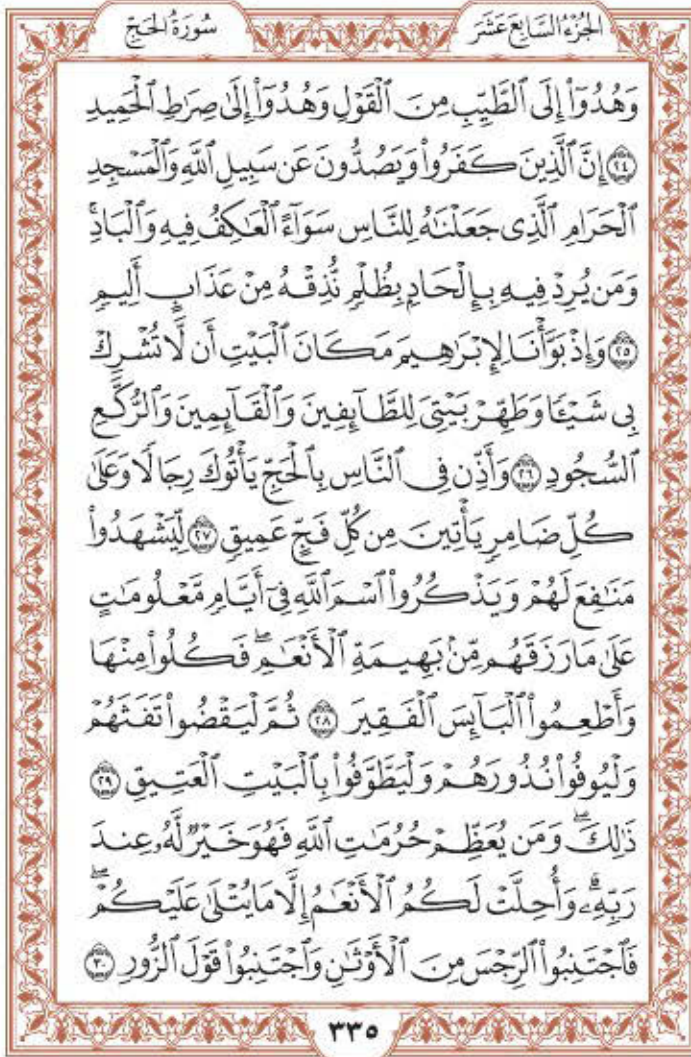 سُورَةُ الحَجِّ
الجُزْءُ السَّابِعَ عَشَرَ
وَهُدُوٓاْ إِلَى ٱلطَّيِّبِ مِنَ ٱلْقَوْلِ وَهُدُوٓاْ إِلَىٰ صِرَٰطِ ٱلْحَمِيدِ
٢٤ إِنَّ ٱلَّذِينَ كَفَرُواْ وَيَصُدُّونَ عَن سَبِيلِ ٱللَّهِ وَٱلْمَسْجِدِ
ٱلْحَرَامِ ٱلَّذِى جَعَلْنَٰهُ لِلنَّاسِ سَوَآءً ٱلْعَٰكِفُ فِيهِ وَٱلْبَادِۚ
وَمَن يُرِدْ فِيهِ بِإِلْحَادٍۭ بِظُلْمٍ نُّذِقْهُ مِنْ عَذَابٍ أَلِيمٍ
٢٥ وَإِذْ بَوَّأْنَا لِإِبْرَٰهِيمَ مَكَانَ ٱلْبَيْتِ أَن لَّا تُشْرِكْ
بِى شَيْـًٔا وَطَهِّرْ بَيْتِىَ لِلطَّآئِفِينَ وَٱلْقَآئِمِينَ وَٱلرُّكَّعِ
ٱلسُّجُودِ ٢٦ وَأَذِّن فِى ٱلنَّاسِ بِٱلْحَجِّ يَأْتُوكَ رِجَالًا وَعَلَىٰ
كُلِّ ضَامِرٍ يَأْتِينَ مِن كُلِّ فَجٍّ عَمِيقٍ ٢٧ لِّيَشْهَدُواْ
مَنَٰفِعَ لَهُمْ وَيَذْكُرُواْ ٱسْمَ ٱللَّهِ فِىٓ أَيَّامٍ مَّعْلُومَٰتٍ
عَلَىٰ مَا رَزَقَهُم مِّنۢ بَهِيمَةِ ٱلْأَنْعَٰمِۖ فَكُلُواْ مِنْهَا
وَأَطْعِمُواْ ٱلْبَآئِسَ ٱلْفَقِيرَ ٢٨ ثُمَّ لْيَقْضُواْ تَفَثَهُمْ
وَلْيُوفُواْ نُذُورَهُمْ وَلْيَطَّوَّفُواْ بِٱلْبَيْتِ ٱلْعَتِيقِ ٢٩
ذَٰلِكَۖ وَمَن يُعَظِّمْ حُرُمَٰتِ ٱللَّهِ فَهُوَ خَيْرٌ لَّهُۥ عِندَ
رَبِّهِۦۗ وَأُحِلَّتْ لَكُمُ ٱلْأَنْعَٰمُ إِلَّا مَا يُتْلَىٰ عَلَيْكُمْۖ
فَٱجْتَنِبُواْ ٱلرِّجْسَ مِنَ ٱلْأَوْثَٰنِ وَٱجْتَنِبُواْ قَوْلَ ٱلزُّورِ ٣٠
٣٣٥